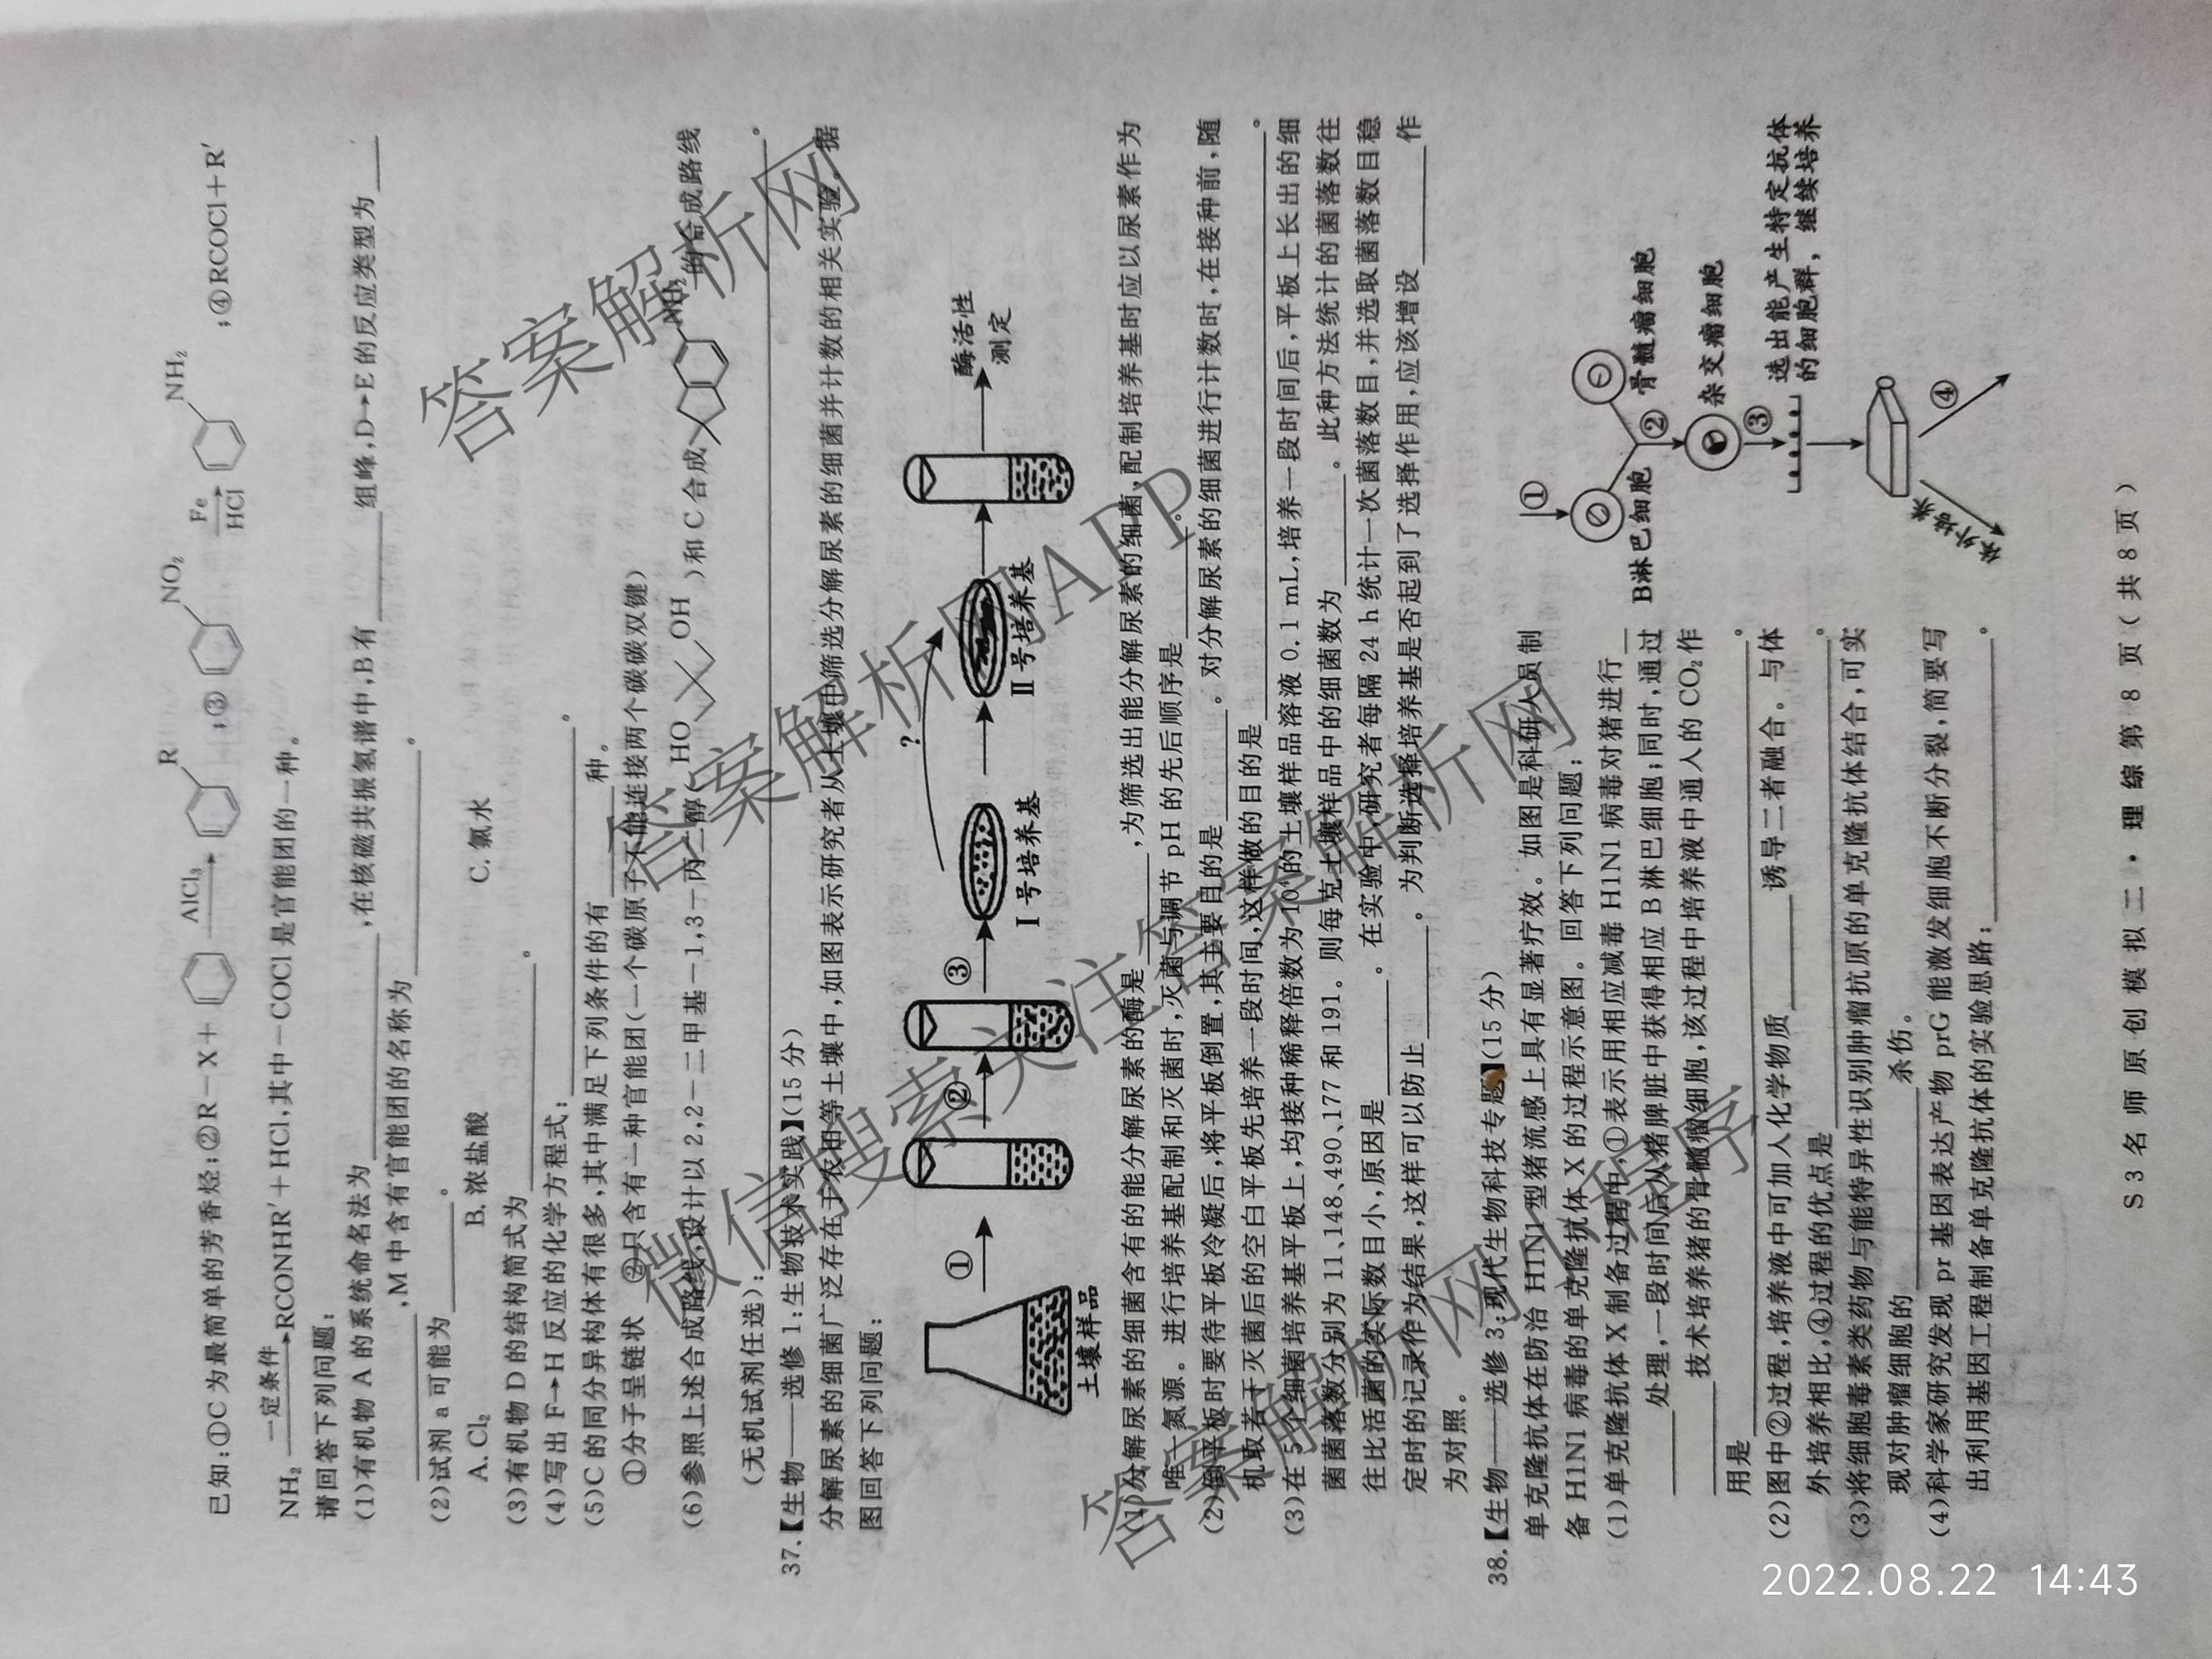 已知:①C为最简单的芳香烃;②R-X+ AlCl₃ R ;③ NO₂ Fe HCl NH₂ ;④RCOCl+R′
NH₂ 一定条件 RCONHR′+HCl,其中-COCl是官能团的一种。
请回答下列问题:
(1)有机物A的系统命名法为 ,在核磁共振氢谱中,B有 组峰,D→E的反应类型为
,M中含有官能团的名称为 。
(2)试剂a可能为 。
A. Cl₂ B. 浓盐酸 C. 氯水
(3)有机物D的结构简式为 。
(4)写出F→H反应的化学方程式: 。
(5)C的同分异构体有很多,其中满足下列条件的有 种。
①分子呈链状 ②只含有一种官能团(一个碳原子不能连接两个碳碳双键)
(6)参照上述合成路线,设计以2,2-二甲基-1,3-丙二醇( HO OH )和C合成 NH₂ 的合成路线
(无机试剂任选): 。
37.【生物——选修1:生物技术实践】(15分)
分解尿素的细菌广泛存在于农田等土壤中,如图表示研究者从土壤中筛选分解尿素的细菌并计数的相关实验。据
图回答下列问题:
① ② ③ ? 酶活性
测定
土壤样品 Ⅰ号培养基 Ⅱ号培养基
(1)分解尿素的细菌含有的能分解尿素的酶是 ,为筛选出能分解尿素的细菌,配制培养基时应以尿素作为
唯一氮源。进行培养基配制和灭菌时,灭菌与调节pH的先后顺序是 。
(2)倒平板时要待平板冷凝后,将平板倒置,其主要目的是 。对分解尿素的细菌进行计数时,在接种前,随
机取若干灭菌后的空白平板先培养一段时间,这样做的目的是 。
(3)在5个细菌培养基平板上,均接种稀释倍数为10⁴的土壤样品溶液0.1 mL,培养一段时间后,平板上长出的细
菌菌落数分别为11、148、490、177和191。则每克土壤样品中的细菌数为 。此种方法统计的菌落数往
往比活菌的实际数目小,原因是 。在实验中,研究者每隔24 h统计一次菌落数目,并选取菌落数目稳
定时的记录作为结果,这样可以防止 。为判断选择培养基是否起到了选择作用,应该增设 作
为对照。
38.【生物——选修3:现代生物科技专题】(15分)
单克隆抗体在防治H1N1型猪流感上具有显著疗效。如图是科研人员制
备H1N1病毒的单克隆抗体X的过程示意图。回答下列问题:
(1)单克隆抗体X制备过程中,①表示用相应减毒H1N1病毒对猪进行
处理,一段时间后从猪脾脏中获得相应B淋巴细胞;同时,通过
技术培养猪的骨髓瘤细胞,该过程中培养液中通入的CO₂作
用是 。
(2)图中②过程,培养液中可加入化学物质 诱导二者融合。与体
外培养相比,④过程的优点是 。
(3)将细胞毒素类药物与能特异性识别肿瘤抗原的单克隆抗体结合,可实
现对肿瘤细胞的 杀伤。
(4)科学家研究发现pr基因表达产物prG能激发细胞不断分裂,简要写
出利用基因工程制备单克隆抗体的实验思路: 。
①
B淋巴细胞 骨髓瘤细胞
②
杂交瘤细胞
③
选出能产生特定抗体
的细胞群,继续培养
体外培养 ④
S3名师原创模拟二·理综第8页(共8页)
答案解析网
答案解析网APP
微信搜索关注答案解析网
答案解析网小程序
2022.08.22 14:43